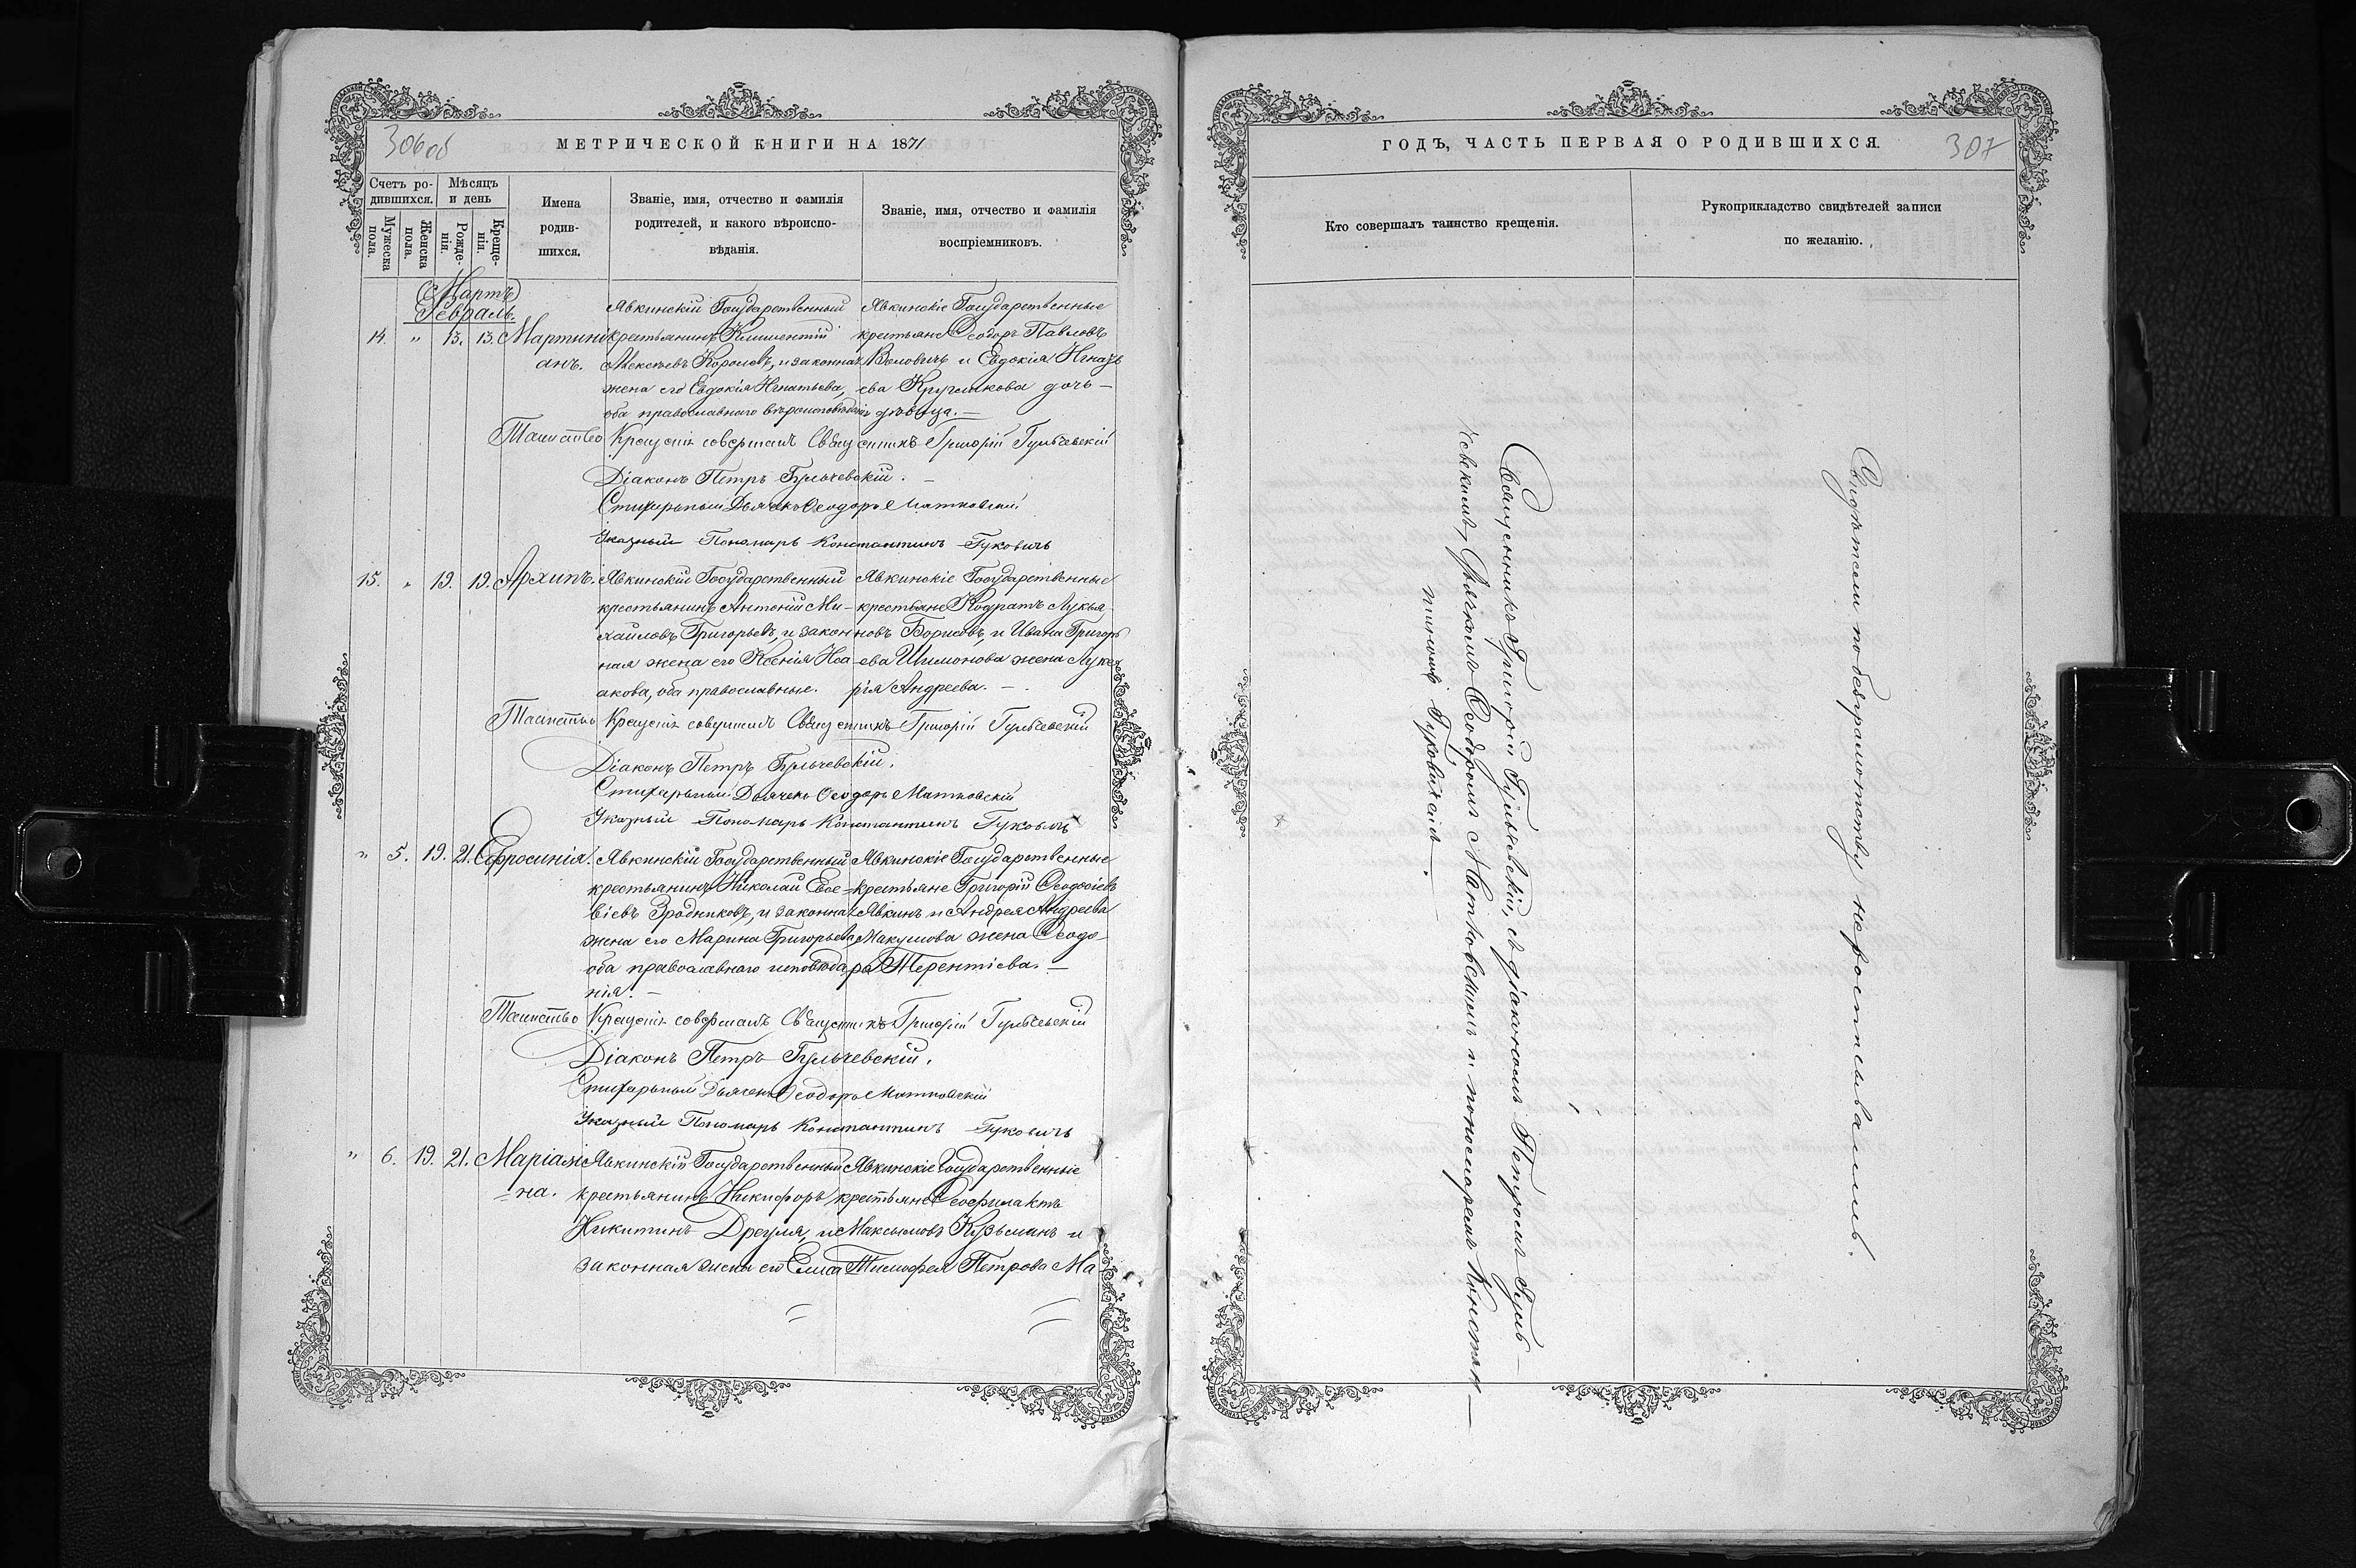 306 об
МЕТРИЧЕСКОЙ КНИГИ НА 1871
Счетъ ро-
дившихся.
Мѣсяцъ
и день
Мужеска
пола.
Женска
пола.
Рожде-
нія.
Креще-
нія.
Имена
родив-
шихся.
Званіе, имя, отчество и фамилія
родителей, и какого вѣроиспо-
вѣданія.
Званіе, имя, отчество и фамилія
воспріемниковъ.
Мартъ
Февраль.
14. " 13. 13. Мартини
анъ.
Явкинскій Государственный
крестьянинъ Климентій
Алексѣевъ Королевъ, и законная
жена его Евдокія Игнатьева,
оба православнаго вѣроисповѣданія
Явкинскіе Государственные
крестьяне Ѳеодоръ Павловъ
и Евдокія Игнать
ева дочь —
дѣвица. —
Таинство Крещенія совершалъ Священникъ Григорій Гульчевскій
Діаконъ Петръ Гульчевскій. —
Стихарный Дьячекъ Ѳеодоръ Матковскій
Указный Пономарь Константинъ Гуковичъ
15. " 19. 19. Архипъ.
Явкинскій Государственный
крестьянинъ Антоній Ми-
хайловъ Григорьевъ, и закон
ная жена его Ксенія Иса
акова, оба православные.
Явкинскіе Государственные
крестьяне Кодратъ Лукья
новъ Борисовъ, и Ивана Григорь
ева Шимонова жена Луке
рія Андреева. —
Таинство Крещенія совершилъ Священникъ Григорій Гульчевскій
Діаконъ Петръ Гульчевскій.
Стихарный Дьячекъ Ѳеодоръ Матковскій
Указный Пономарь Константинъ Гуковичъ
" 5. 19. 21. Евфросинія.
Явкинскій Государственный
крестьянинъ Николай Евсе-
віевъ Зродниковъ, и законная
жена его Марина Григорьева,
оба православнаго исповѣда
нія. —
Явкинскіе Государственные
крестьяне Григорій Ѳеодосіевъ
Явкинъ и Андрея Андреева
Макушова жена Ѳеодо-
ра Терентіева. —
Таинство Крещенія совершалъ Священникъ Григорій Гульчевскій
Діаконъ Петръ Гульчевскій.
Стихарный Дьячекъ Ѳеодоръ Матковскій
Указный Пономарь Константинъ Гуковичъ
" 6. 19. 21. Маріами
-на.
Явкинскій Государственный
крестьянинъ Никифоръ
Никитинъ Дрегуля, и
законная жена его Елиса
Явкинскіе Государственные
крестьяне Ѳеофилактъ
Максимовъ Кузьминъ и
Тимофея Петрова Ма
ГОДЪ, ЧАСТЬ ПЕРВАЯ О РОДИВШИХСЯ.
307
Кто совершалъ таинство крещенія.
Рукоприкладство свидѣтелей записи
по желанію.
Священникъ Григорій Гульчевскій, съ діакономъ Петромъ Гуль—
чевскимъ, дьячкомъ Ѳеодоромъ Матковскимъ и пономаремъ Констан—
тиномъ Гуковичемъ. —
Свидѣтели по безграмотству не росписывались.